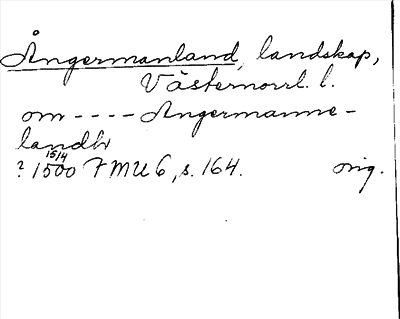 Ångermanland, landskap,
Västernorrl. l.
om - - - - Angermanne-
landh
15/4
? 1500 FMU 6, s. 164. orig.